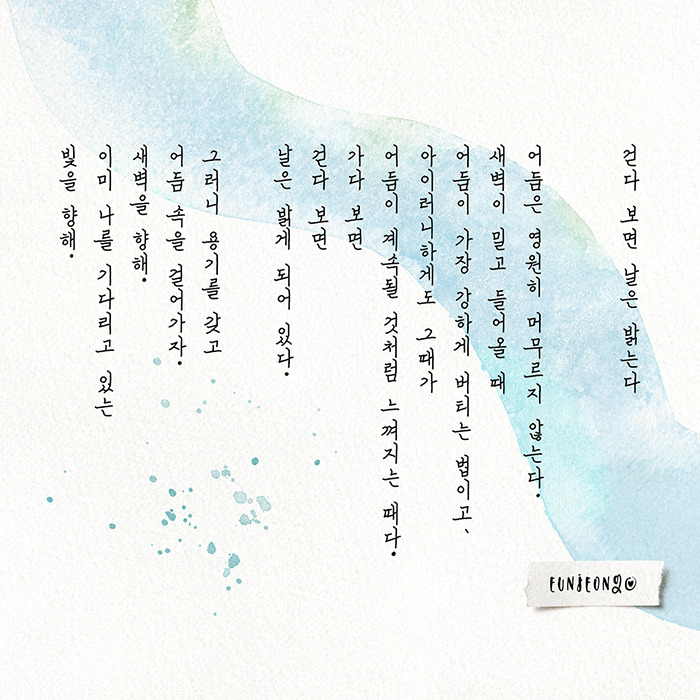 걷다 보면 날은 밝는다
어둠은 영원히 머무르지 않는다.
새벽이 밀고 들어올 때
어둠이 가장 강하게 버티는 법이고、
아이러니하게도 그때가
어둠이 계속될 것처럼 느껴지는 때다.
가다 보면
걷다 보면
날은 밝게 되어 있다.
그러니 용기를 갖고
어둠 속을 걸어가자.
새벽을 향해.
이미 나를 기다리고 있는
빛을 향해.
EUNJEONG